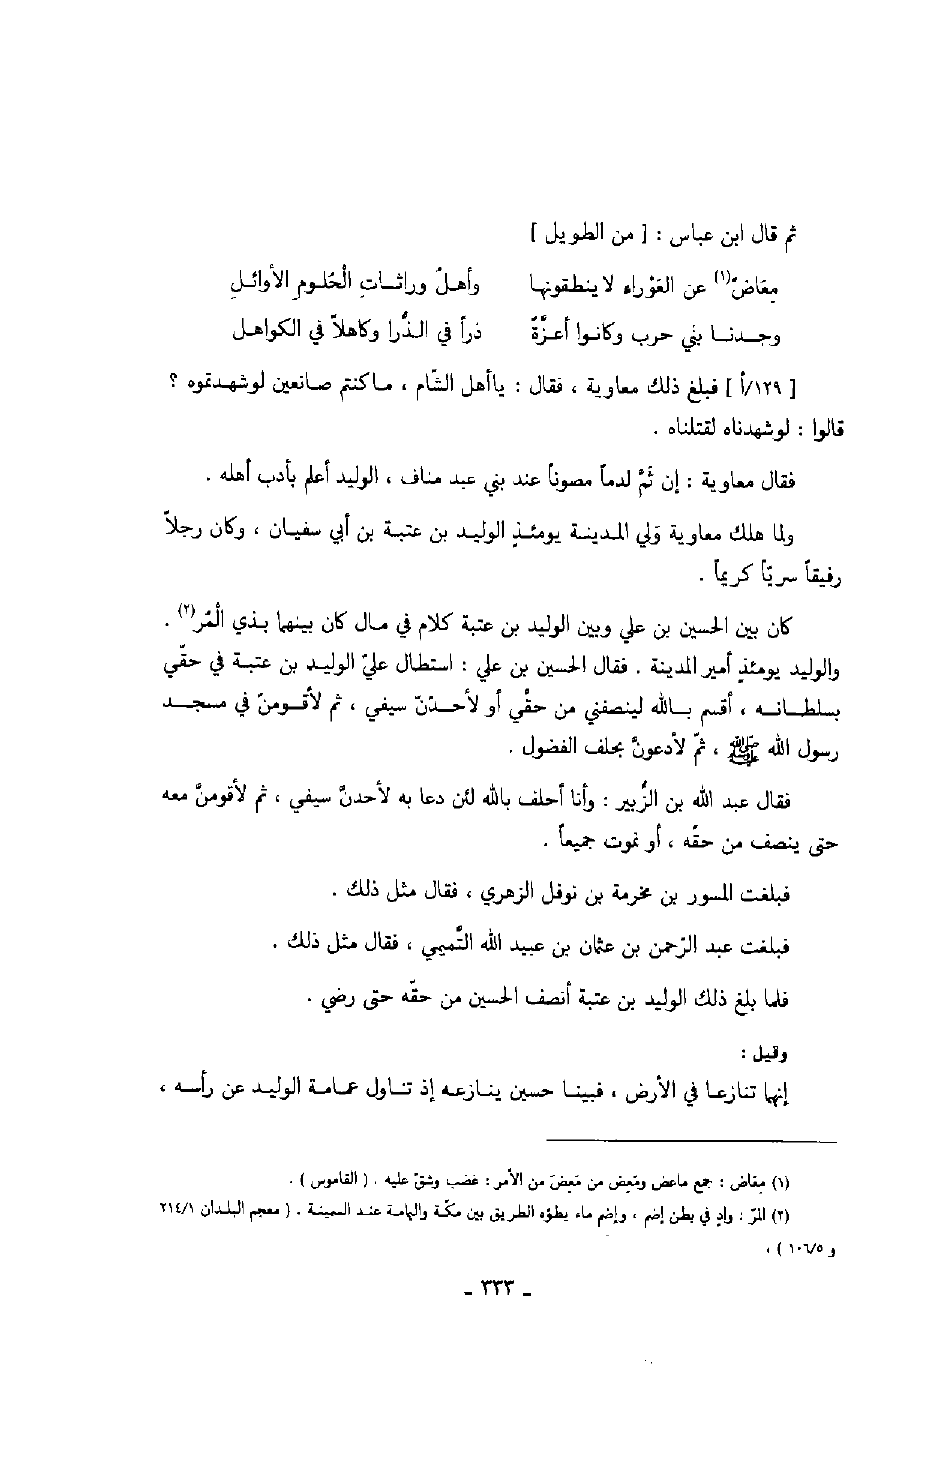 ثم قال ابن عباس : [ من الطويل ]
مِعَاضٌ(١) عن العَوْراء لا ينطقونها وأهلُ وراثاتِ الْحُلومِ الأوائلِ
وجدنا بني حرب وكانوا أعزَّةً ذراً في الذُّرا وكاهلاً في الكواهل
[ ١٢٩/أ ] فبلغ ذلك معاوية ، فقال : ياأهل الشَّام ، ماكنتم صانعين لوشهدتموه ؟
قالوا : لوشهدناه لقتلناه .
فقال معاوية : إن ثَمَّ لدماً مصوناً عند بني عبد مناف ، الوليد أعلم بأدب أهله .
ولما هلك معاوية وَلي المدينة يومئذٍ الوليد بن عتبة بن أبي سفيان ، وكان رجلاً
رفيقاً سريّاً كريماً .
كان بين الحسين بن علي وبين الوليد بن عتبة كلام في مال كان بينهما بذي الْمُر(٢) .
والوليد يومئذٍ أمير المدينة . فقال الحسين بن علي : استطال عليّ الوليد بن عتبة في حقّي
بسلطانه ، أقسم بالله لينصفني من حقّي أو لأحدّنّ سيفي ، ثم لأقومنّ في مسجد
رسول الله ﷺ ، ثمّ لأدعونَّ بحلف الفضول .
فقال عبد الله بن الزُّبير : وأنا أحلف بالله لئن دعا به لأحدنَّ سيفي ، ثم لأقومنَّ معه
حتى ينصف من حقّه ، أو نموت جميعاً .
فبلغت المسور بن مخرمة بن نوفل الزهري ، فقال مثل ذلك .
فبلغت عبد الرّحمن بن عثمان بن عبيد الله التَّميمي ، فقال مثل ذلك .
فلما بلغ ذلك الوليد بن عتبة أنصف الحسين من حقّه حتى رضي .
وقيل :
إنها تنازعا في الأرض ، فبينا حسين ينازعه إذ تناول عمامة الوليد عن رأسه ،
(١) مِعَاض : جمع ماعض ومَعِض من مَعِضَ من الأمر : غضب وشقّ عليه . ( القاموس ) .
(٢) المرّ : وادٍ في بطن إضم ، وإضم ماء يطؤه الطريق بين مكّة واليمامة عند السمينة . ( معجم البلدان ٢١٤/١
و ١٠٦/٥ ) ،
- ٣٣٣ -